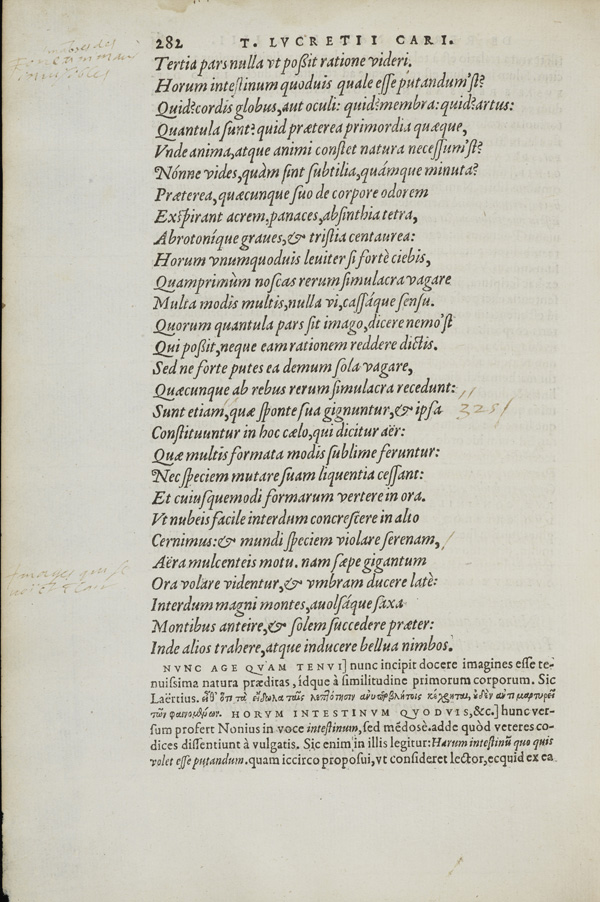 282 T. LVCRETII CARI.
Tertia pars nulla vt poßit ratione videri.
Horum intestinum quoduis quale esse putandum'st?
Quid? cordis globus, aut oculi: quid? membra: quid? artus:
Quantula sunt? quid præterea primordia quæque,
Vnde anima, atque animi constet natura necessum'st?
Nónne vides, quàm sint subtilia, quámque minuta?
Præterea, quæcunque suo de corpore odorem
Exspirant acrem, panaces, absinthia tetra,
Abrotoníque graues, & tristia centaurea:
Horum vnumquoduis leuiter si fortè ciebis,
Quamprimùm noscas rerum simulacra vagare
Multa modis multis, nulla vi, cassáque sensu.
Quorum quantula pars sit imago, dicere nemo'st
Qui poßit, neque eam rationem reddere dictis.
Sed ne forte putes ea demum sola vagare,
Quæcunque ab rebus rerum simulacra recedunt:
Sunt etiam, quæ sponte sua gignuntur, & ipsa 325
Constituuntur in hoc cælo, qui dicitur aër:
Quæ multis formata modis sublime feruntur:
Nec speciem mutare suam liquentia cessant:
Et cuiusquemodi formarum vertere in ora.
Vt nubeis facile interdum concrescere in alto
Cernimus: & mundi speciem violare serenam,
Aëra mulcenteis motu. nam sæpe gigantum
Ora volare videntur, & vmbram ducere latè:
Interdum magni montes, auolsáque saxa
Montibus anteire, & solem succedere præter:
Inde alios trahere, atque inducere bellua nimbos.
NVNC AGE QVAM TENVI] nunc incipit docere imagines esse te-
nuissima natura præditas, ídque à similitudine primorum corporum. Sic
Laërtius. εἶθ' ὅτι τὰ εἴδωλα ταῖς λεπτότησιν ἀνυπερβλήτοις κέχρηται, οὐδὲν ἀντιμαρτυρεῖ
τῶν φαινομένων. HORVM INTESTINVM QVODVIS, &c.] hunc ver-
sum profert Nonius in voce intestinum, sed médosè. adde quòd veteres co-
dices dissentiunt à vulgatis. Sic enim in illis legitur: Harum intestinũ quo quis
volet esse putandum. quam iccirco proposui, vt consideret lector, ecquid ex ea